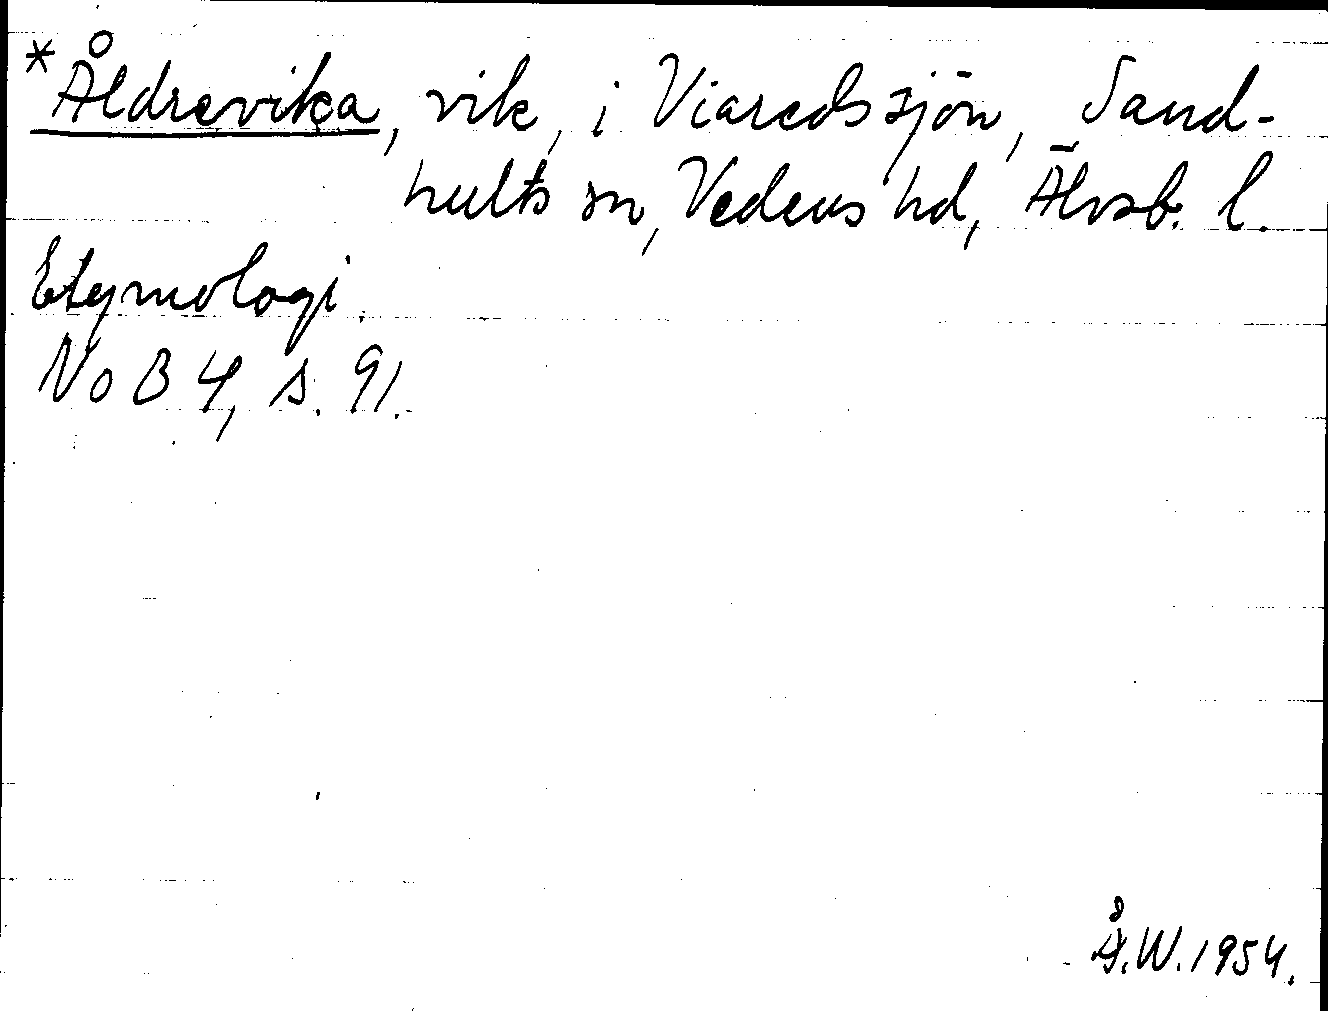 *Åldrevika, vik, i Viaredssjön, Sand-
hults sn, Vedens hd, Älvsb. l.
Etymologi.
NoB 4, s. 91.
Å.W. 1954.